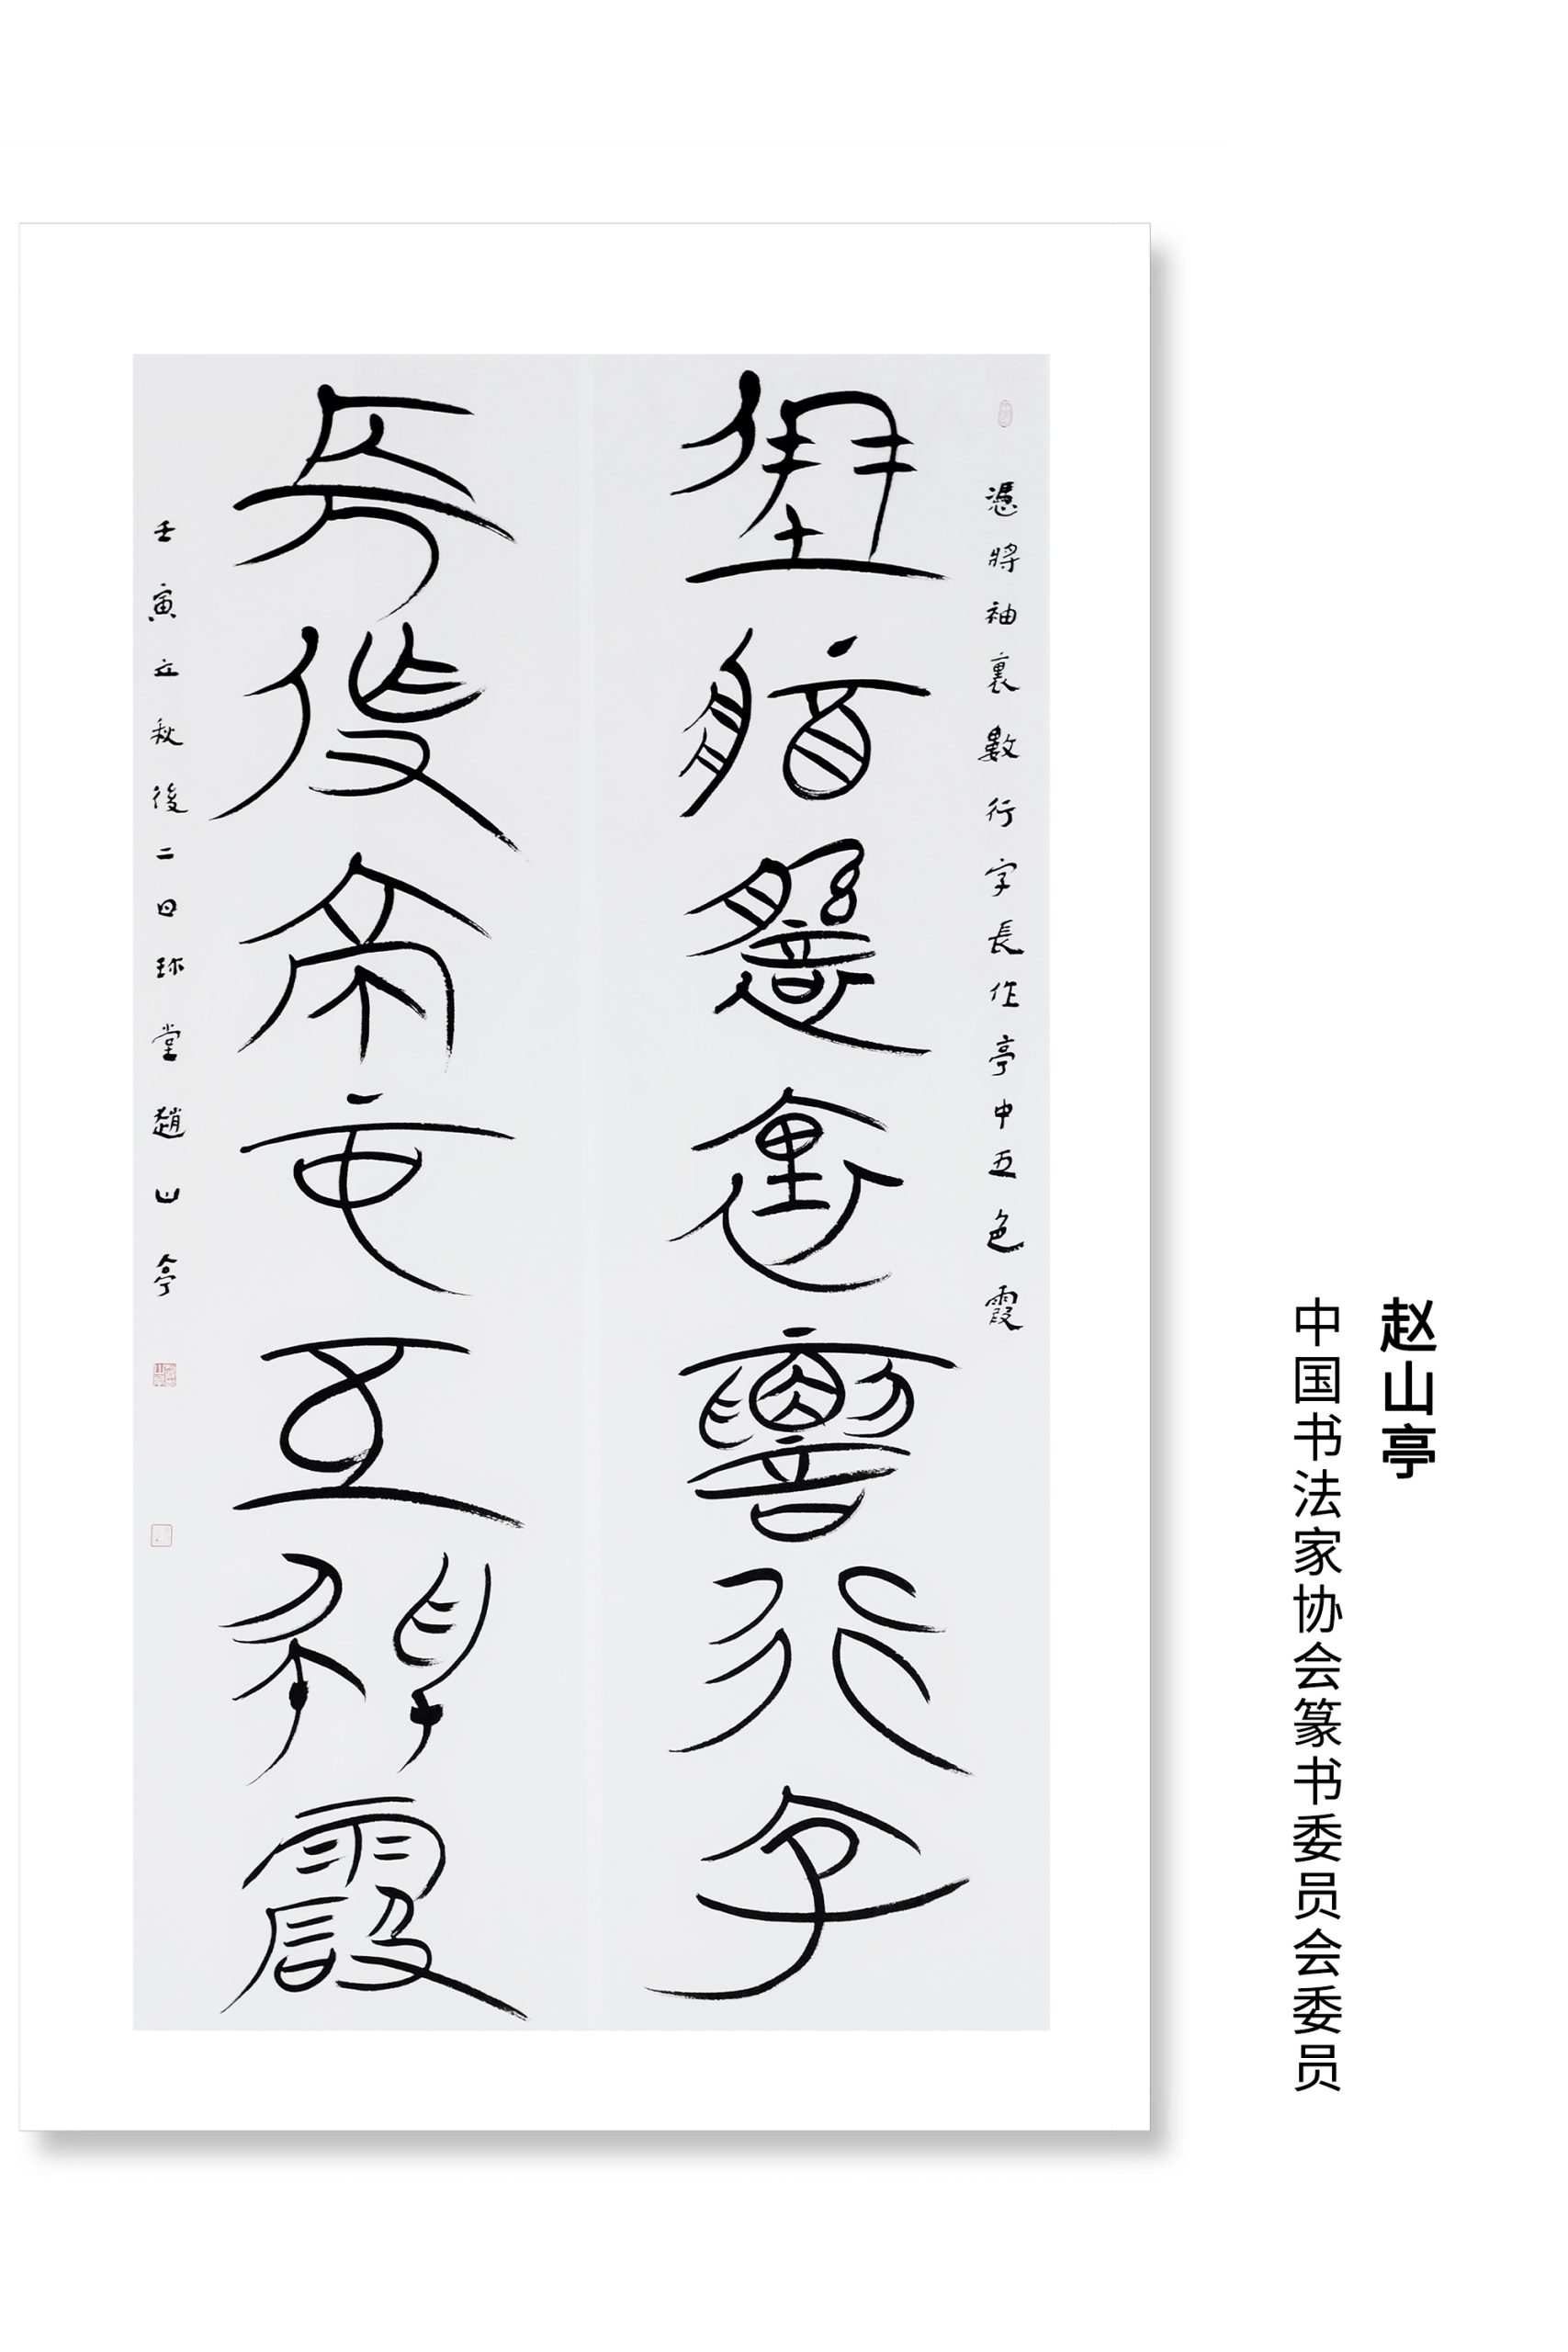 赵山亭
中国书法家协会篆书委员会委员
憑將袖裏數行字長作亭中五色霞
憑將袖裏數行字
長作亭中五色霞
壬寅立秋後二日珎堂趙山亭